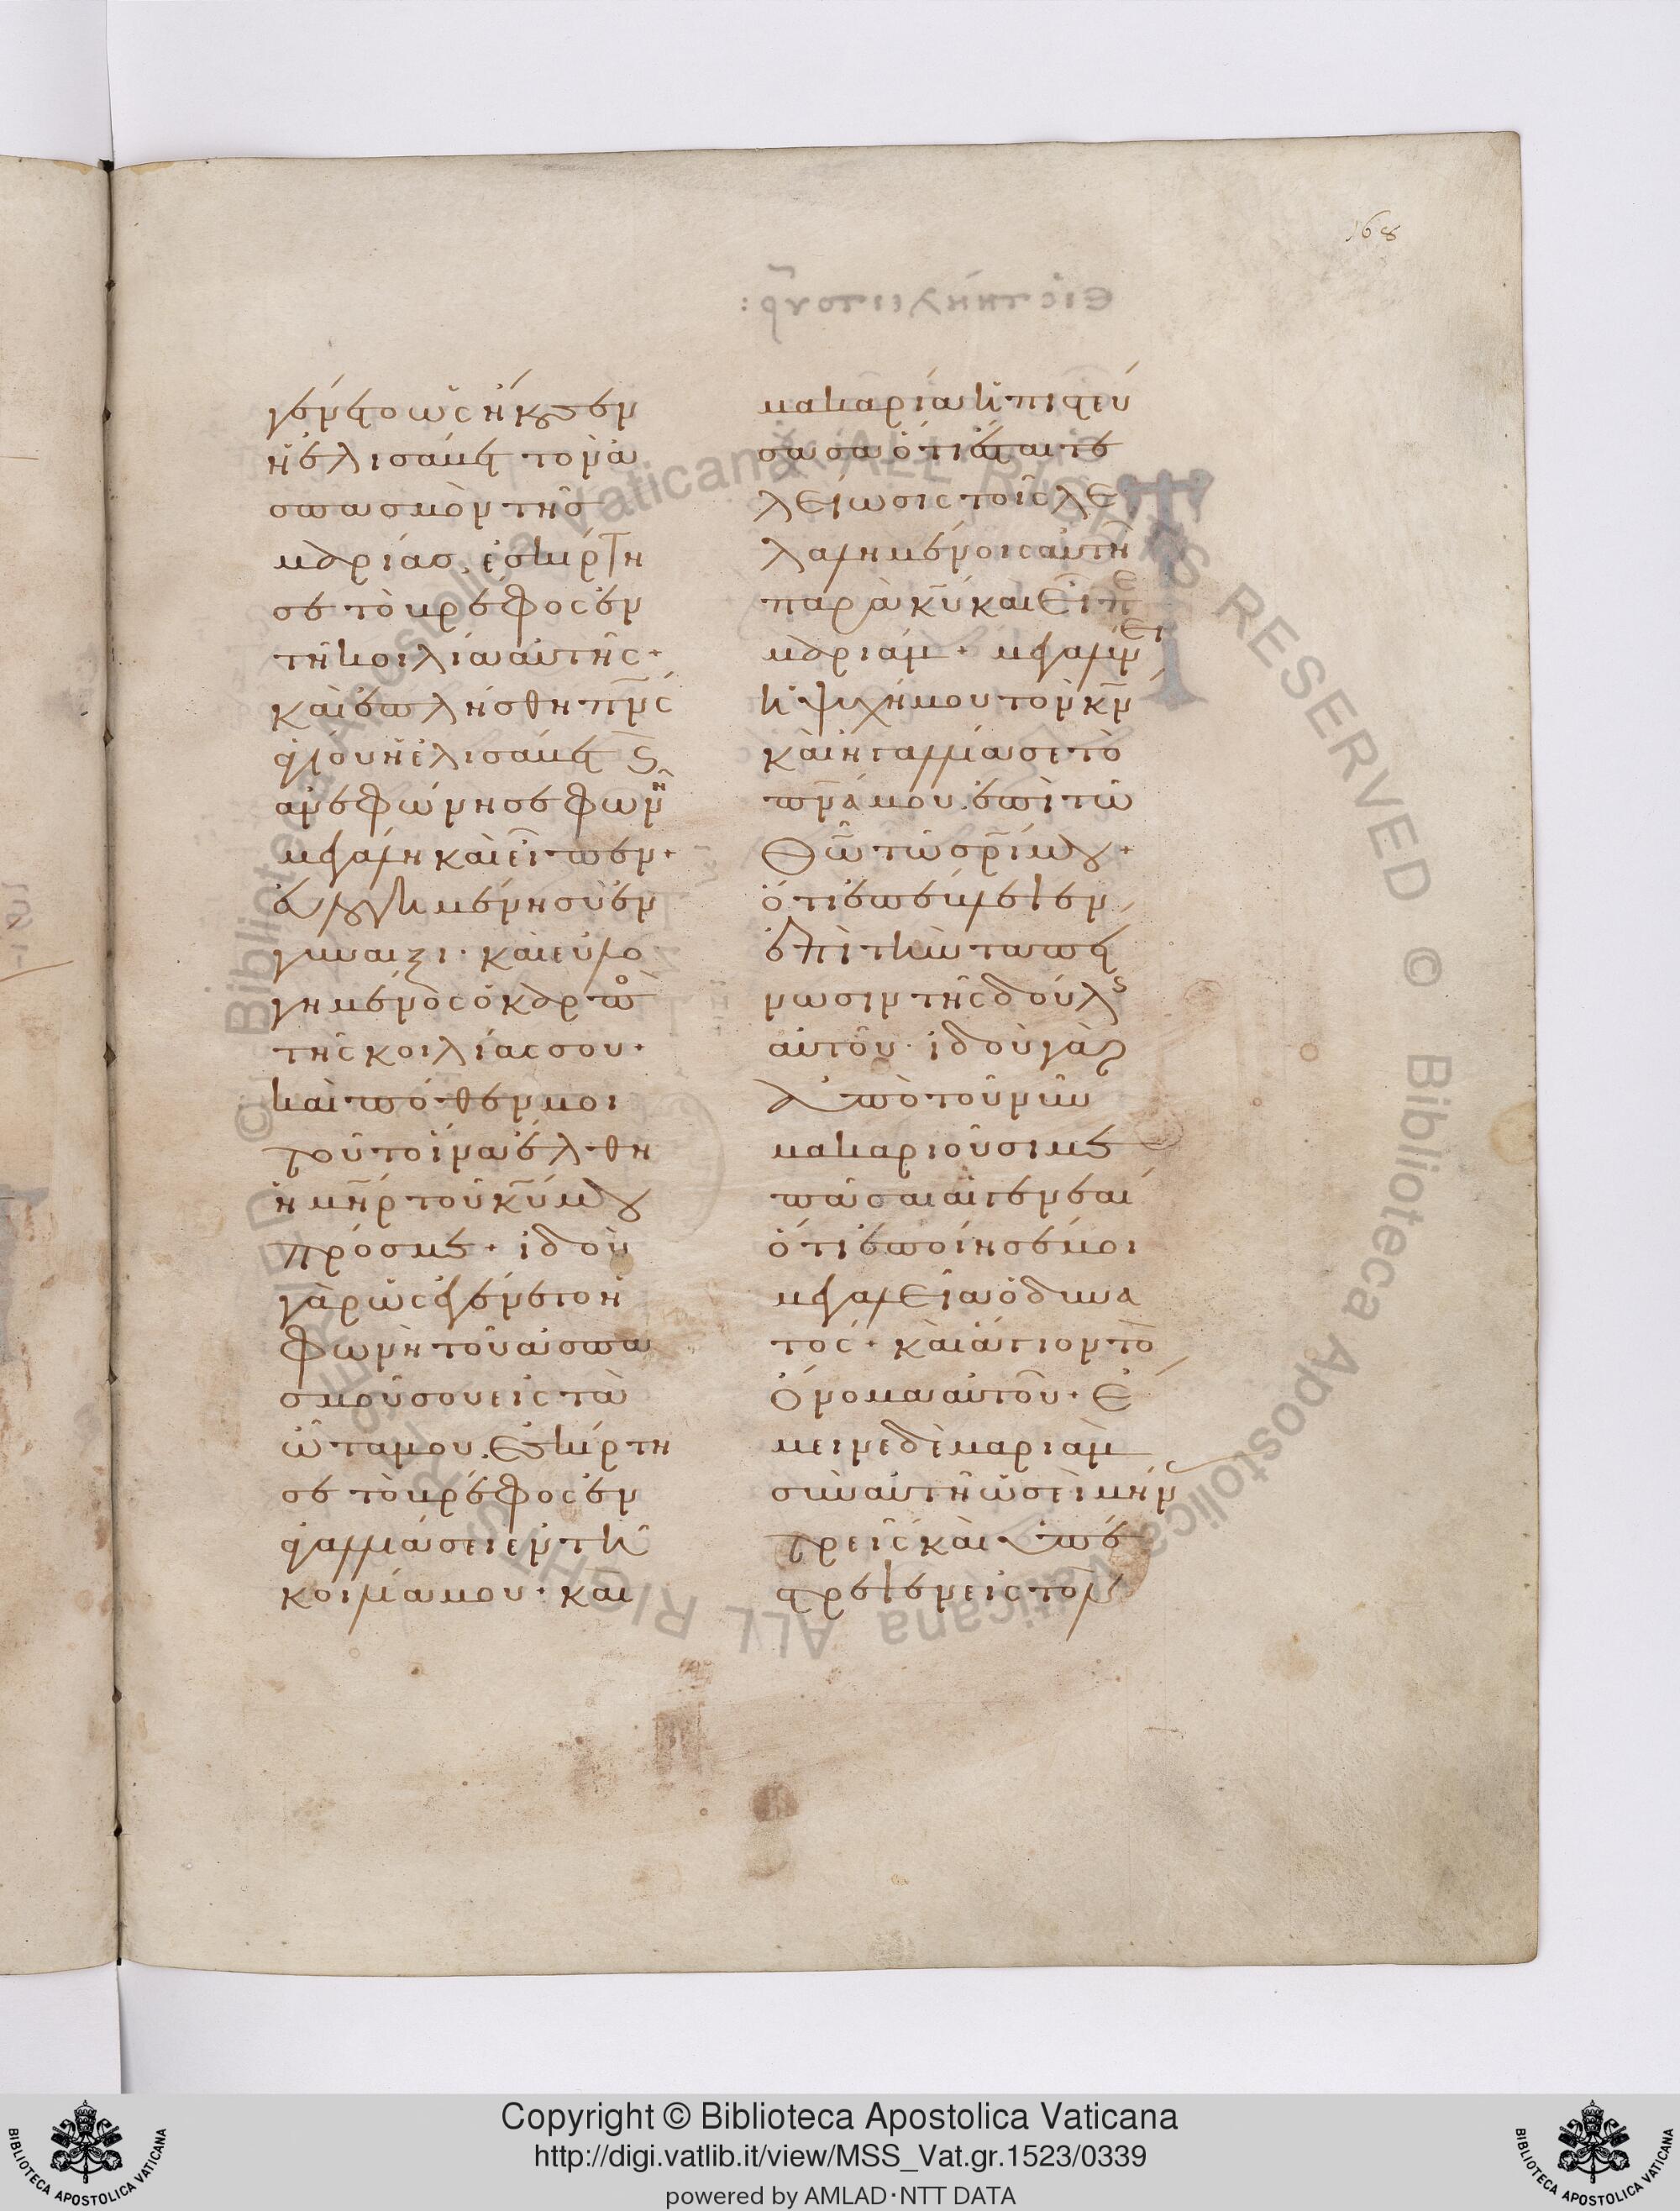 168
γένετο ὡς ἤκουσεν
ἡ ἐλισάβετ τον ἀ
σπασμὸν τῆς
μαρίας, ἐσκίρτη
σε τὸ βρέφος ἐν
τῇ κοιλία αὐτῆς·
καὶ ἐπλήσθη πνς
ἁγίου ἡ ἐλισάβετ κ(αὶ)
ἀνεφώνησε φωνῆ
μεγάλη καὶ εἶπεν·
εὐλογημένη σὺ ἐν
γυναιξι· καὶ εὐλο
γημένος ὁ καρπὸ(ς)
τῆς κοιλίας σου·
καὶ πόθεν μοι
τοῦτο ἵνα ἔλθη
ἡ μηρ τοῦ κυ μου
πρός με· ἰδοὺ
γὰρ ὡς ἐγένετο ἡ
φωνὴ τοῦ ἀσπα
σμοῦ σου εἰς τὰ
ὦτα μου. ἐσκίρτη
σε τὸ βρέφος ἐν
ἀγαλλιάσει ἐν τῆ
κοιλία μου· και
μακαρία ἡ πιστεύ
σασα ὅτι ἔσται τε
λείωσις τοῖς λε
λαλημένοις αὐτῆ
παρὰ κυ καὶ εἶπε
μαριάμ· μεγαλύνει
ἡ ψυχή μου τὸν κν
καὶ ἠγαλλίασε τὸ
πνα μου. ἐπὶ τῶ
θω τῶ σρι μου·
ὅτι ἐπέβλεψεν
ἐπὶ τὴν ταπεί
νωσιν τῆς δούλης
αὐτοῦ· ἰδοὺ γὰρ
ἀπὸ τοῦ νῦν
μακαριοῦσι με
πᾶσαι αἱ γενεαί
ὅτι ἐποίησέ μοι
μεγαλεῖα ὁ δυνα
τός· καὶ ἅγιον τὸ
ὄνομα αὐτοῦ· ἔ
μεινε δὲ μαριὰμ
σὺν αὐτῆ ὡσεὶ μῆν(ας)
τρεῖς καὶ ὑπέ
στρεψεν εἰς τὸν
Copyright © Biblioteca Apostolica Vaticana
http://digi.vatlib.it/view/MSS_Vat.gr.1523/0339
powered by AMLAD·NTT DATA